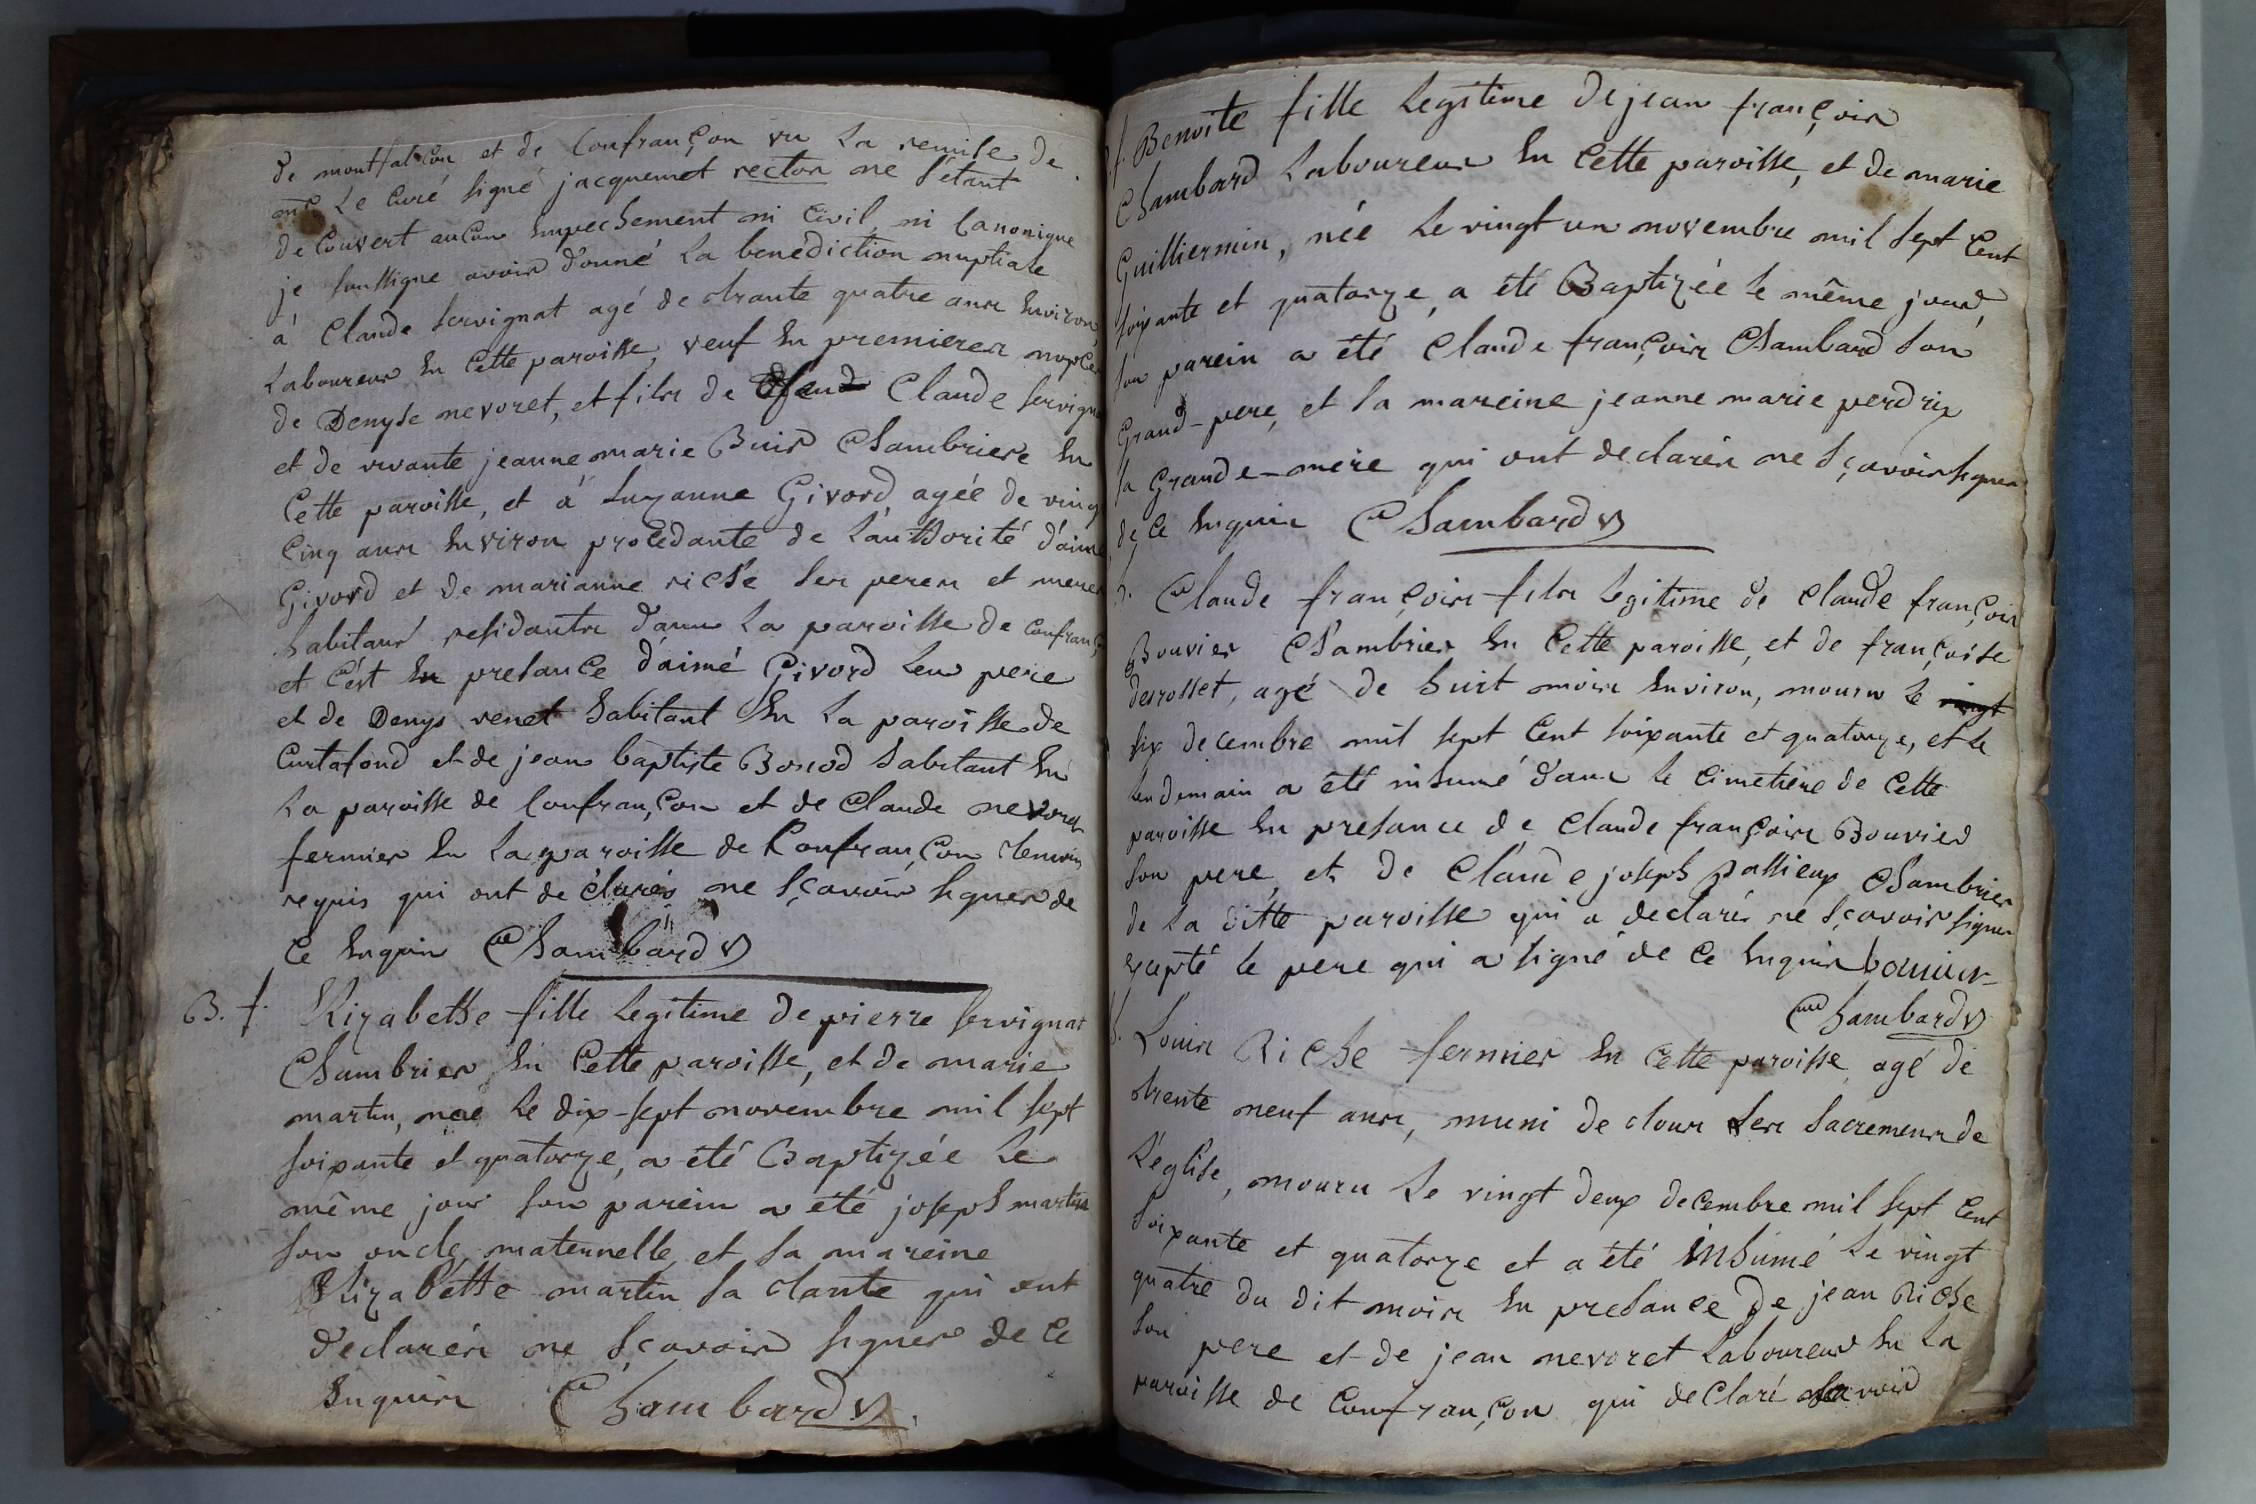 de montfalcon et de Confrançon vu la remise de
mre le Curé signé jacquemet rector ne s'étant
decouvert aucun Empechement ni Civil, ni Canonique
je soussigne avoir donné la benediction nuptiale
à Claude servignat agé de trante quatre ans Environ
laboureur En Cette paroisse, veuf En premieres nopces
de Denyse nevoret, et fils de Claude servigna
et de vivante jeanne marie Buir Chambriere En
Cette paroisse, et à Suzanne Givord agée de ving
Cinq ans Environ procedante de l'authorité d'aimé
Givord et de marianne riche ses peres et meres
habitans residants dans la paroisse de Confranç
et c'est En presance d'aimé Givord leur pere
et de Denys venet habitant En la paroisse de
Curtafond et de jean baptiste Bonod habitant En
la paroisse de Confrançon et de Claude nevoret
fermier En la paroisse de Confrançon temoins
requis qui ont declarés ne sçavoir signer de
ce Enquis Chambard V
B. f. Elizabethe fille legitime de pierre servignat
Chambrier En Cette paroisse, et de marie
martin, nee le dix-sept novembre mil sept
soixante et quatorze, a été Baptizée le
même jour son parein a été joseph martin
son oncle maternelle et sa mareine
Elizabethe martin sa tante qui ont
declarés ne sçavoir signer de ce
Enquis Chambard V.
f. Benoite fille legitime de jean françois
Chambard Laboureur En Cette paroisse, et de marie
Guilliermin, née le vingt un novembre mil sept Cent
soixante et quatorze, a été Baptizée le même jour,
son parein a été Claude françois Chambard son
Grand-pere, et sa mareine jeanne marie perdrix
sa Grande-mere qui ont declarés ne sçavoir signer
de ce Enquis Chambard V
Claude françois fils legitime de Claude françois
Bouvier Chambrier En Cette paroisse, et de françoise
desrosset, agé de huit mois Environ, mouru le vingt
six decembre mil sept Cent soixante et quatorze, et le
lendemain a été inhumé dans le Cimetiere de Cette
paroisse En presance de Claude françois Bouvier
son pere, et de Claude joseph passieux Chambrier
de la ditte paroisse qui a declarés ne sçavoir signer
excepté le pere qui a signé de ce Enquis bouuier
Chambard V
Louis Riche fermier En Cette paroisse agé de
trente neuf ans, muni de tous les sacremens de
l'église, mouru le vingt deux decembre mil sept Cent
soixante et quatorze et a été inhumé le vingt
quatre du dit mois En presance de jean Riche
son pere et de jean nevoret Laboureur En la
paroisse de Confrançon qui declaré